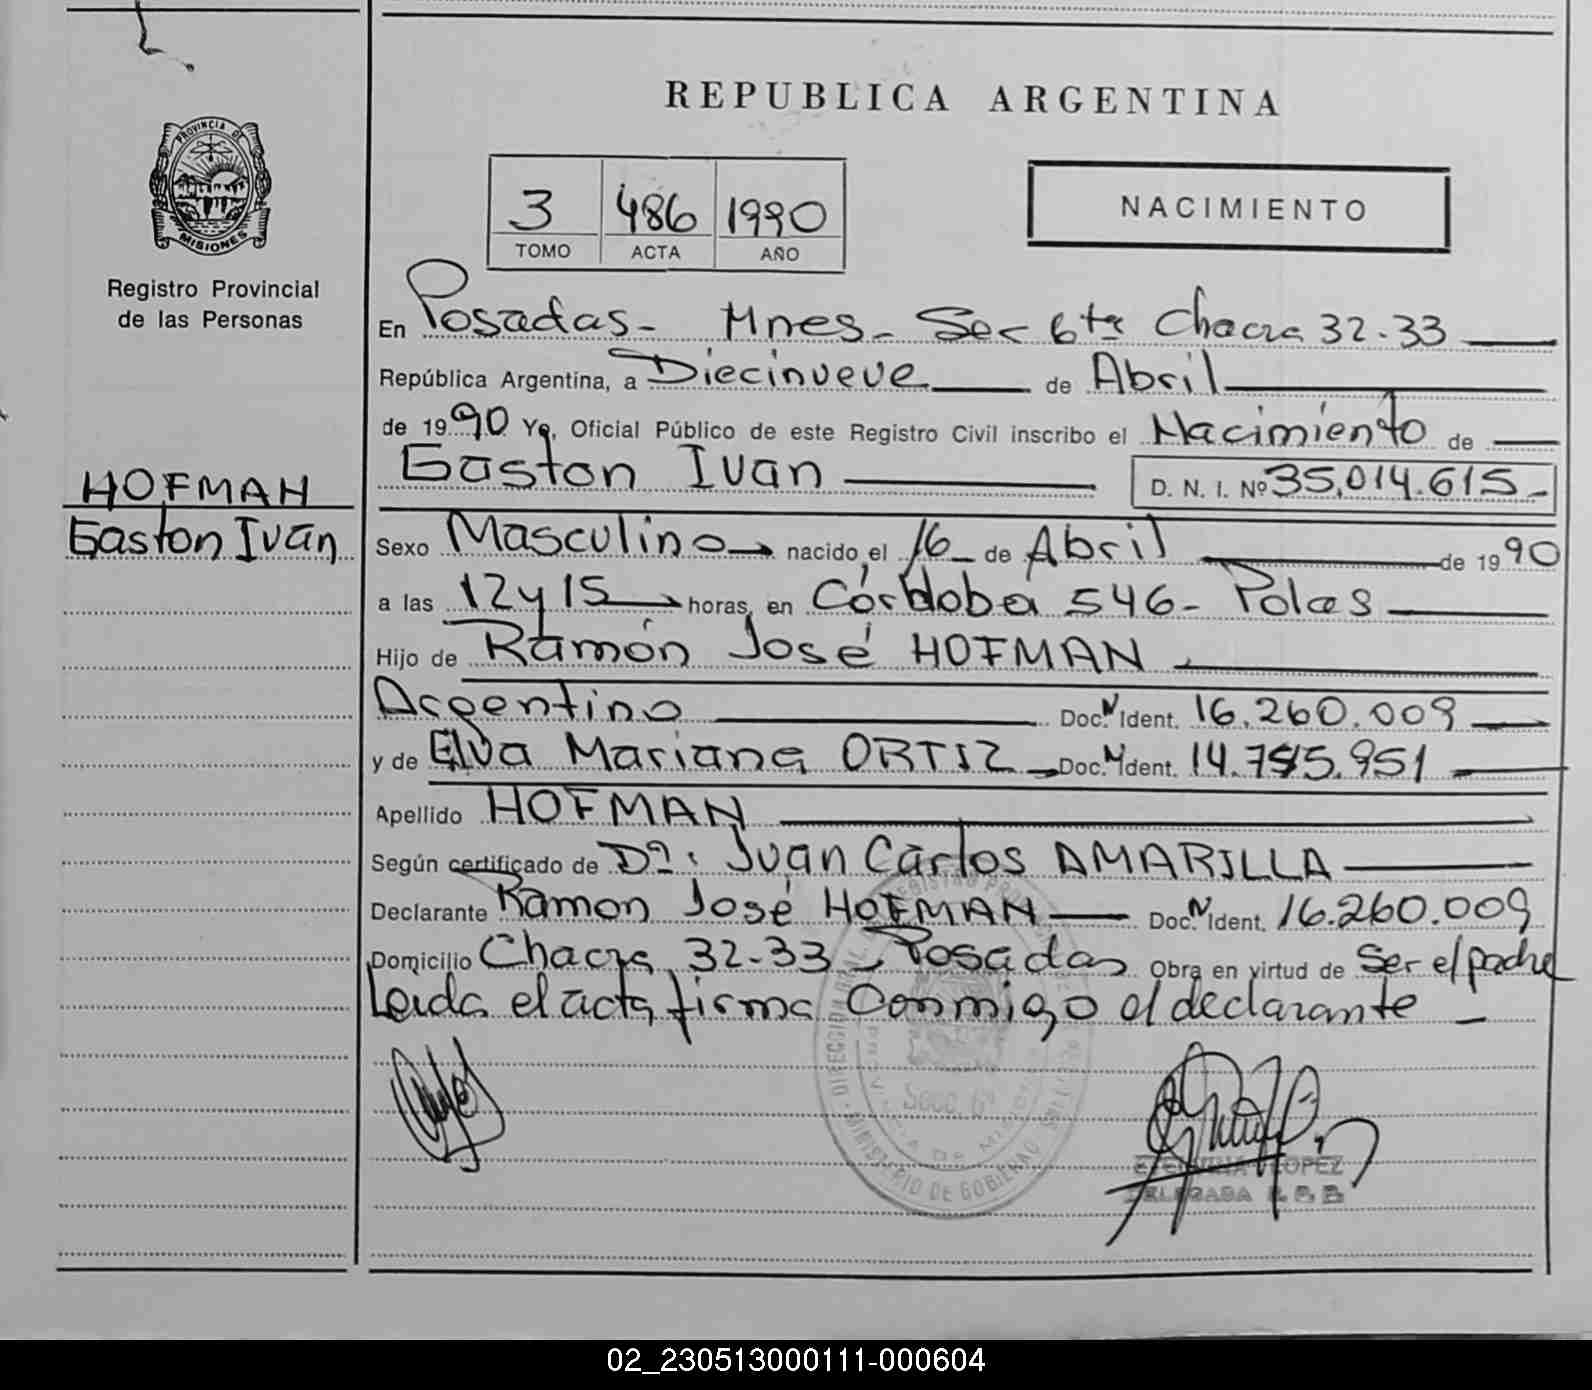 REPUBLICA ARGENTINA
PROVINCIA DE
MISIONES
Registro Provincial
de las Personas
3 486 1990
TOMO ACTA AÑO
NACIMIENTO
En Posadas - Mnes - Sec 6ta Chacra 32-33
República Argentina, a Diecinueve de Abril
de 1990 Yo, Oficial Público de este Registro Civil inscribo el Nacimiento de
HOFMAN
Gaston Iván
Gaston Ivan D. N. I. Nº 35.014.615-
Sexo Masculino nacido el 16 de Abril de 1990
a las 12 y 15 horas, en Córdoba 546- Pdas
Hijo de Ramón José HOFMAN
Argentino Doc. N Ident. 16.260.009
y de Elva Mariana ORTIZ Doc. N Ident. 14.745.951
Apellido HOFMAN
Según certificado de Dr: Juan Carlos AMARILLA
Declarante Ramon José HOFMAN Doc. N Ident. 16.260.009
Domicilio Chacra 32-33 - Posadas Obra en virtud de Ser el padre
Leida el acta firma Conmigo el declarante
MINISTERIO DE GOBIERNO
Secc. 6ª
LOPEZ
DELEGADA R. P. P.
02_230513000111-000604